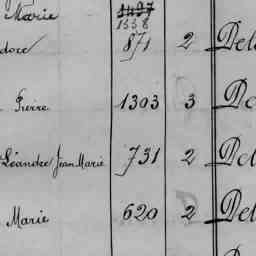 Marie 1497
1558
dore 871 2 Del
Pierre 1303 3 De
Léandre Jean Marie 731 2 Del
Marie 620 2 Del